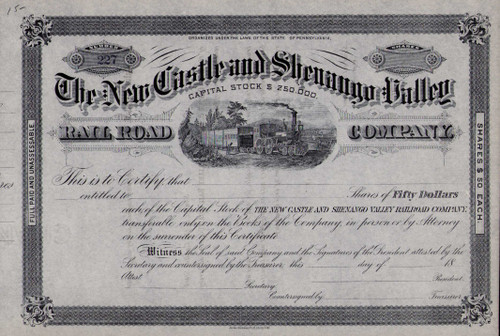 15-
ORGANIZED UNDER THE LAWS OF THE STATE OF PENNSYLVANIA.
NUMBER
227
SHARES
The New Castle and Shenango Valley
CAPITAL STOCK $ 250,000.
RAIL ROAD COMPANY.
FULL PAID AND UNASSESSABLE
SHARES $ 50 EACH
This is to Certify, that
entitled to Shares of Fifty Dollars
each, of the Capital Stock of THE NEW CASTLE AND SHENANGO VALLEY RAILROAD COMPANY,
transferable only on the Books of the Company, in person or by Attorney
on the surrender of this Certificate.
Witness the Seal of said Company and the Signatures of the President attested by the
Secretary and countersigned by the Treasurer, this day of 18
Attest President
Secretary
Countersigned by Treasurer